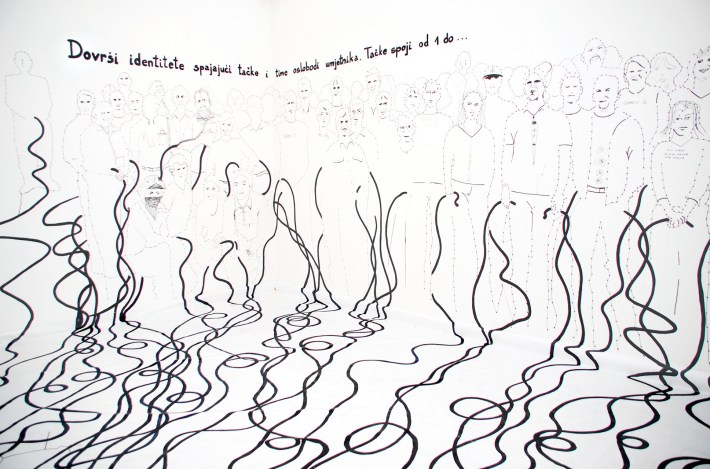 Dovrši identitete spajajući tačke i time oslobodi umjetnika. Tačke spoji od 1 do ...